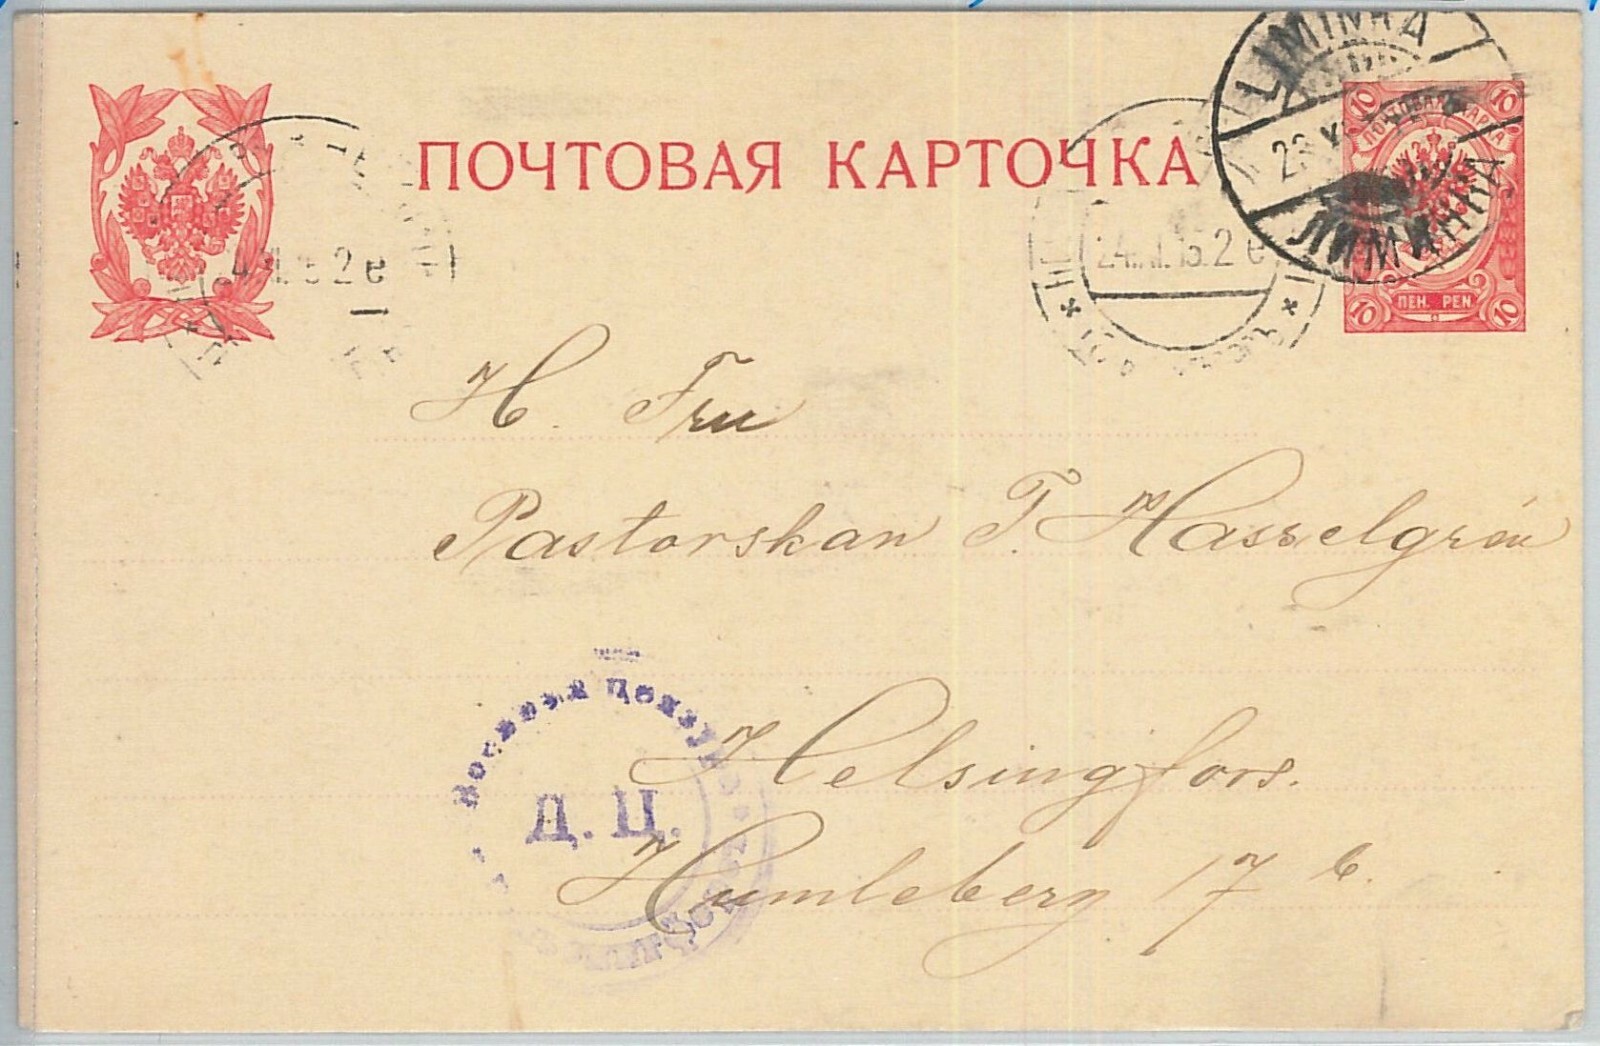 ПОЧТОВАЯ КАРТОЧКА
LIMINKA
ЛИМИНКА
10 10
ПОЧТОВАЯ МАРКА
ПЕН. PEN
10 10
24. 15. 2 e
2 e
H. Fru
Pastorskan T. Hasselgrén
Helsingfors.
Humleberg 17 b.
Военная Цензура
Д. Ц.